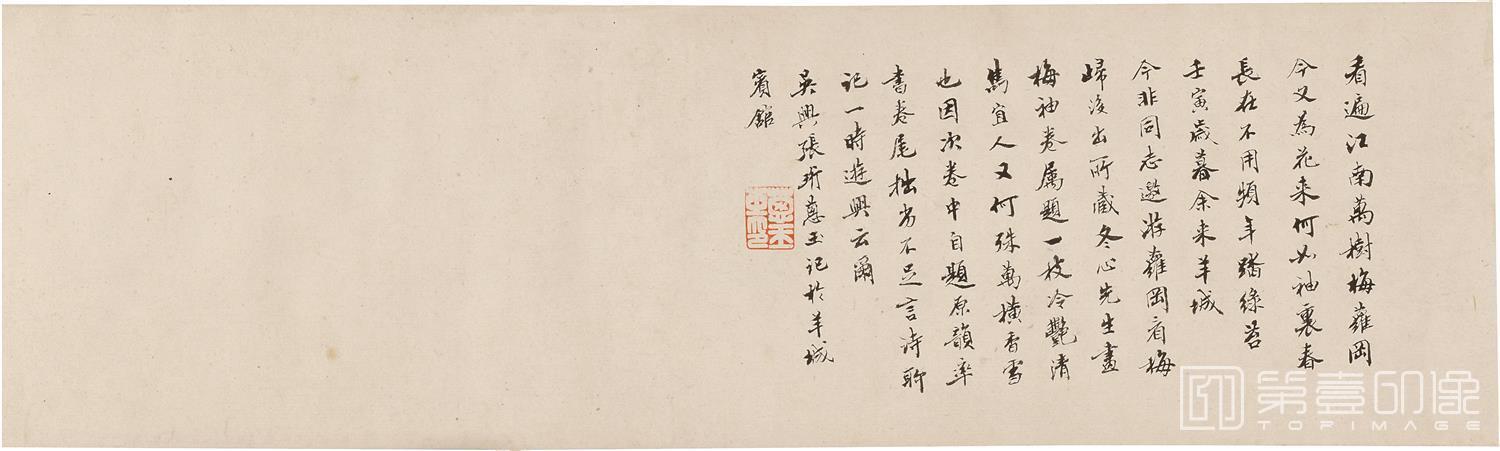 看遍江南萬樹梅蘿岡
今又為花来何如袖裏春
長在不用頻年踏綠苔
壬寅歲暮余来羊城
今非同志邀游蘿岡看梅
歸後出所藏冬心先生畫
梅袖卷属題一枝冷艷清
雋宜人又何殊萬橫香雪
也因次卷中自題原韻率
書卷尾拙劣不足言詩聊
記一時遊興云爾
吳興張珩蔥玉記於羊城
賓館
第壹印像
TOPIMAGE